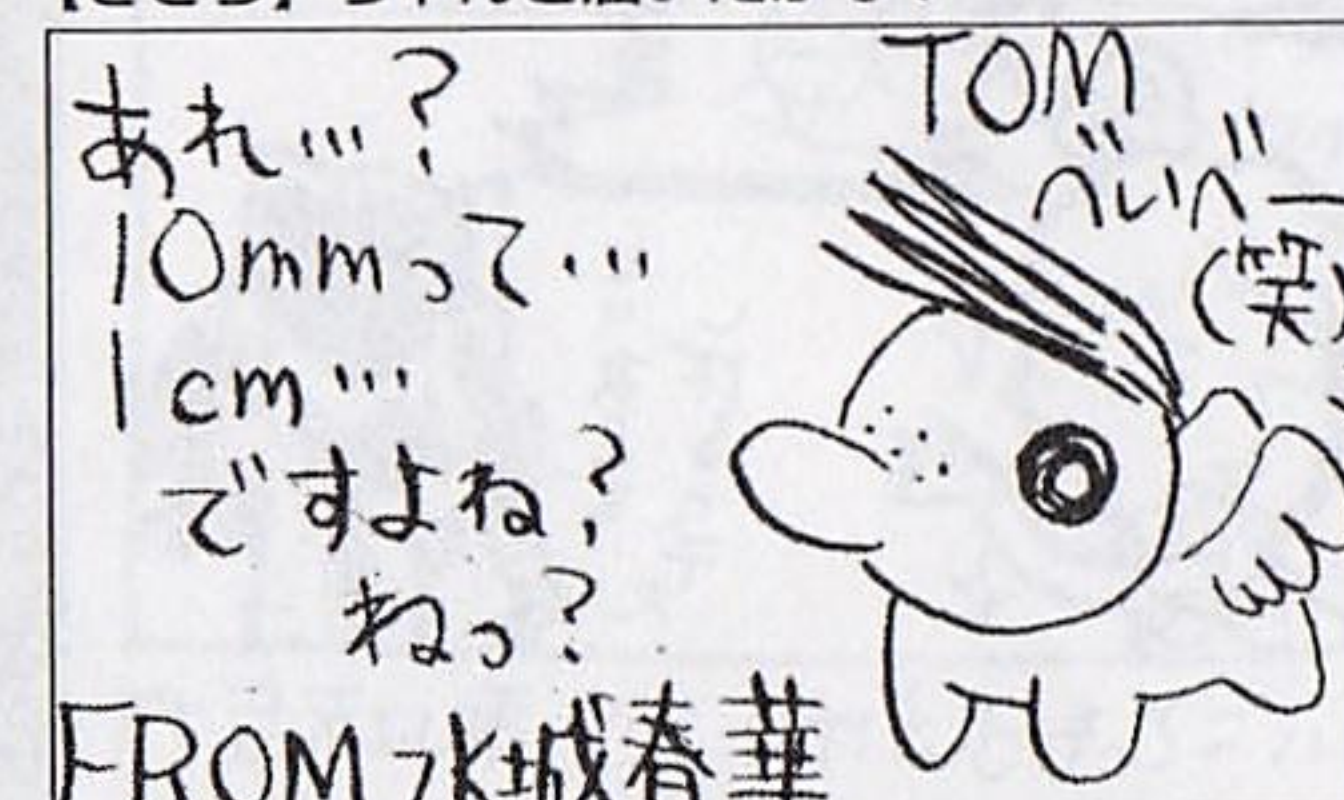 あれ…?
10mmって…
1cm…
ですよね?
ねっ?
FROM 水城春華
TOM
べいべー
(笑)